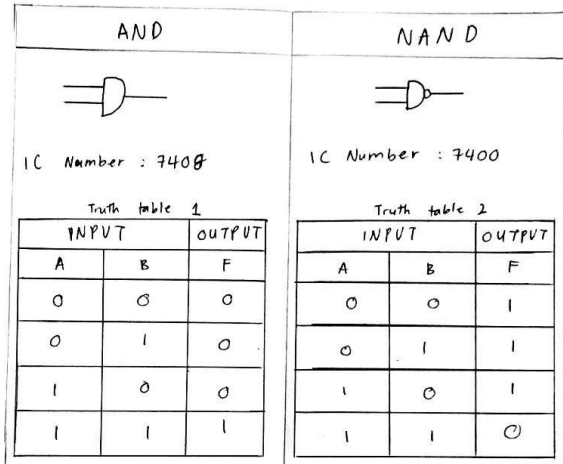 AND
IC Number : 7408
Truth table 1
INPUT OUTPUT
A B F
0 0 0
0 1 0
1 0 0
1 1 1
NAND
IC Number : 7400
Truth table 2
INPUT OUTPUT
A B F
0 0 1
0 1 1
1 0 1
1 1 0